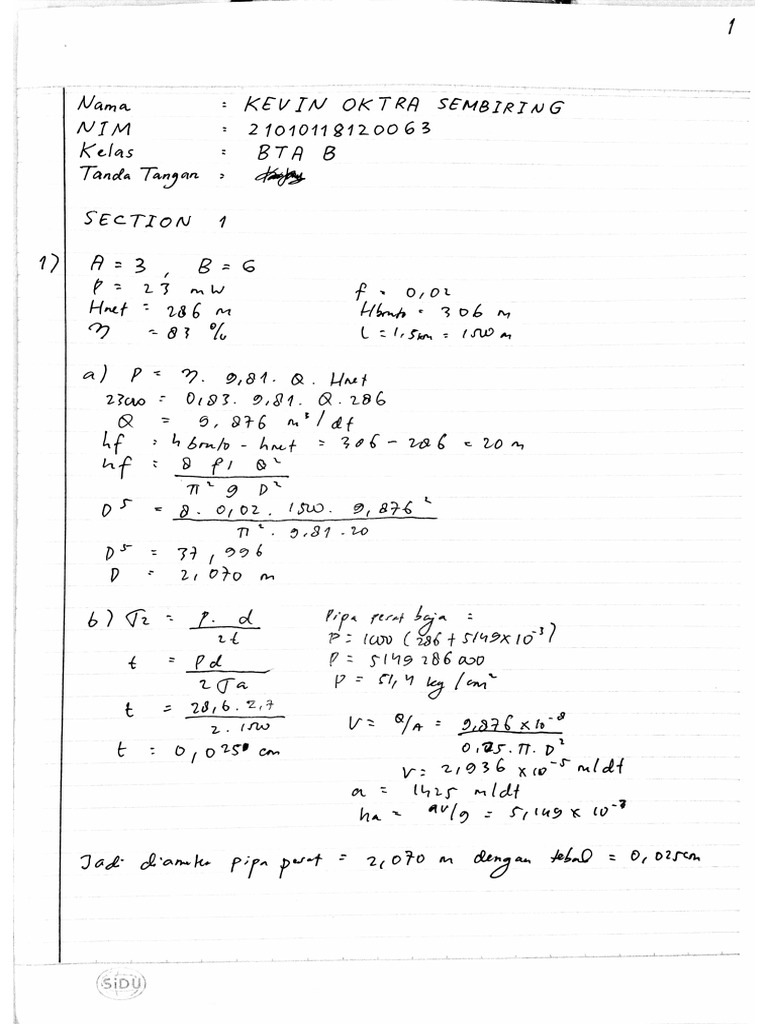 1
Nama : KEVIN OKTRA SEMBIRING
NIM : 21010118120063
Kelas : BTA B
Tanda Tangan :
SECTION 1
1) A = 3 , B = 6
P = 23 mW f = 0,02
Hnet = 286 m Hbruto = 306 m
η = 83 % L = 1,5km = 1500 m
a) P = η. 9,81. Q. Hnet
23000 = 0,83. 9,81. Q. 286
Q = 9,876 m³/dt
hf = hbruto - hnet = 306 - 286 = 20 m
hf = 8 f l Q² / π² g D²
D⁵ = 8. 0,02. 1500. 9,876² / π². 9,81. 20
D⁵ = 37,996
D = 2,070 m
b) σ2 = P. d / 2t Pipa pesat baja =
P = 1000 (286 + 5149x10⁻³)
t = Pd / 2 σa P = 5149286000
P = 51,4 kg/cm²
t = 28,6. 2,7 / 2. 1500 V = Q/A = 9,876 x10⁻⁸ / 0,25. π. D²
t = 0,025 cm V = 2,936 x10⁻⁵ m/dt
a = 1425 m/dt
ha = av/g = 5,149 x 10⁻³
Jadi diameter pipa pesat = 2,070 m dengan tebal = 0,025cm
SiDU